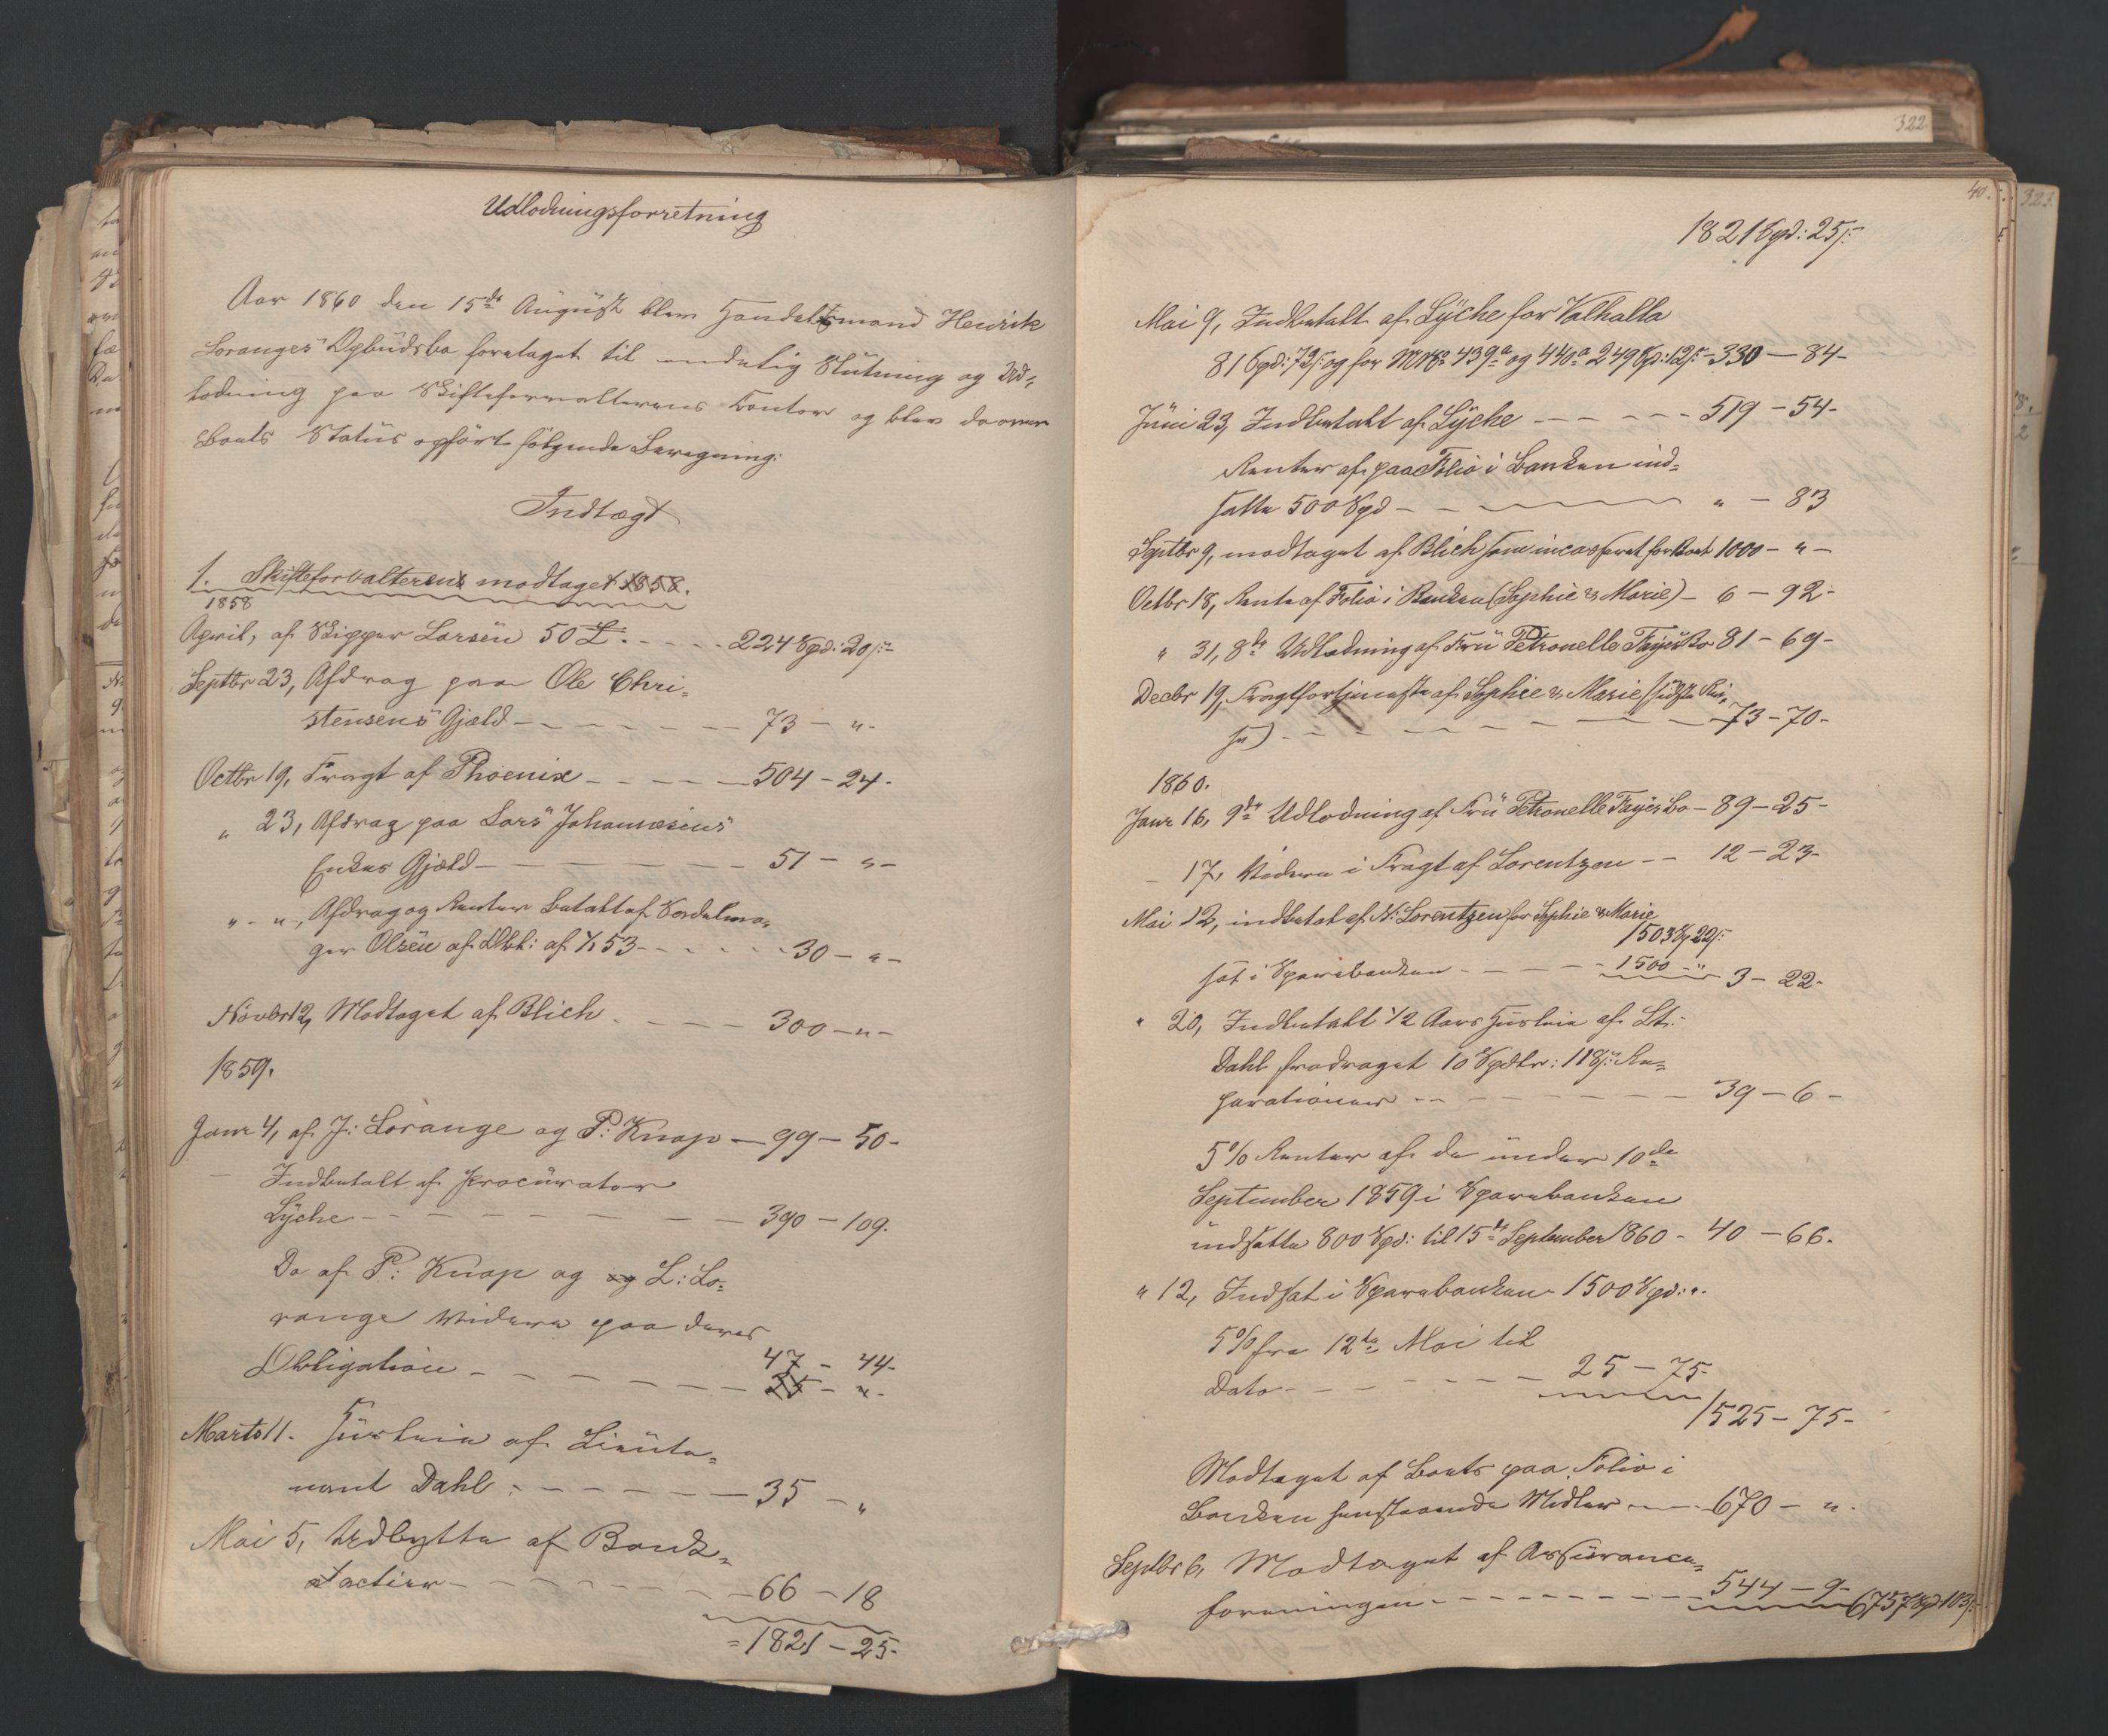 Udlodningsforretning
Aar 1860 den 15de August blev Handelsmand Henrik
Loranges Opbudsbo foretaget til endelig Slutning og Ud=
lodning paa Skifteforvalterens Contor og blev da over
Boets Status opført følgende Beregning:
Indtægt
1. Skifteforvalterens modtaget 1858.
1858
April, af Skipper Larsen 50 £. - - - - 224 Spd: 20 s:
Septbr 23, Afdrag paa Ole Chri=
stensens Gjæld - - - - - - 73 - " -
Octbr 19, Fragt af Phoenix - - - - 504 - 24 -
" 23, Afdrag paa Lars Johannesens
Enkes Gjæld - - - - - - 51 - " -
" - " -, Afdrag og Renter betalt af
ger Olsen af Obl: af 53 - - - - - 30 - " -
Novbr 12, Modtaget af Blich - - - - 300 - " -
1859.
Janr 4, af J: Lorange og P: Knap - 99 - 50 -
- Indbetalt af Procurator
Lyche - - - - - - - 390 - 109.
Do af P: Knap og og L: Lo=
range videre paa deres
Obligation - - - - - - 47 - 44 -
25 - " -
Marts 11. Husleie af Lieute=
nant Dahl : - - - - - - 35 - "
Mai 5, Udbytte af Bank=
actier - - - - - - - 66 - 18
= 1821 - 25 -
322
323.
40.
1821 Spd: 25 s:
Mai 9, Indbetalt af Lyche for Valhalla
81 Spd: 72 s: og for MNo 439a og 440a 249 Sp: 12 s: - 330 - 84 -
Juni 23, Indbetalt af Lyche - - - - - 519 - 54 -
Renter af paa Folio i Banken ind=
satte 500 Spd - - - - " - 83
Septbr 9, modtaget af Blich som incasseret for Boet 1000 - " -
Octbr 18, Rente af Folio i Banken (Sophie & Marie) - 6 - 92 -
" 31, 8de Udlodning af Fru Petronelle Fayes Bo 81 - 69 -
Decbr 19, Fragtfortjeneste af Sophie & Marie (sidste Rei=
se) - - - - - - - 73 - 70 -
1860.
Janr 16, 9de Udlodning af Fru Petronelle Fayes Bo - 89 - 25 -
- 17, Videre i Fragt af Lorentzen - - 12 - 23 -
Mai 12, indbetalt af N: Lorentzen for Sophie & Marie
1503 Sp 22 s:
sat i Sparebanken - - - - 1500 - " 3 - 22 -
" 20, Indbetalt 1/2 Aars Husleie af Lt:
Dahl fradraget 10 Spdlr: 118 s: Re=
parationer - - - - - - - 39 - 6 -
5% Renter af de under 10de
September 1859 i Sparebanken
indsatte 800 Spd: til 15de September 1860 - 40 - 66 -
" 12, Indsat i Sparebanken 1500 Spd: " -
5% fra 12te Mai til
Dato - - - - - - 25 - 75 -
1525 - 75 -
Modtaget af Boets paa Folio i
Banken henstaaende Midler - - - 670 - " -
Septbr 6, Modtaget af Assurance=
foreningen - - - - - - - 544 - 9 - 6757 Spd 103 s: